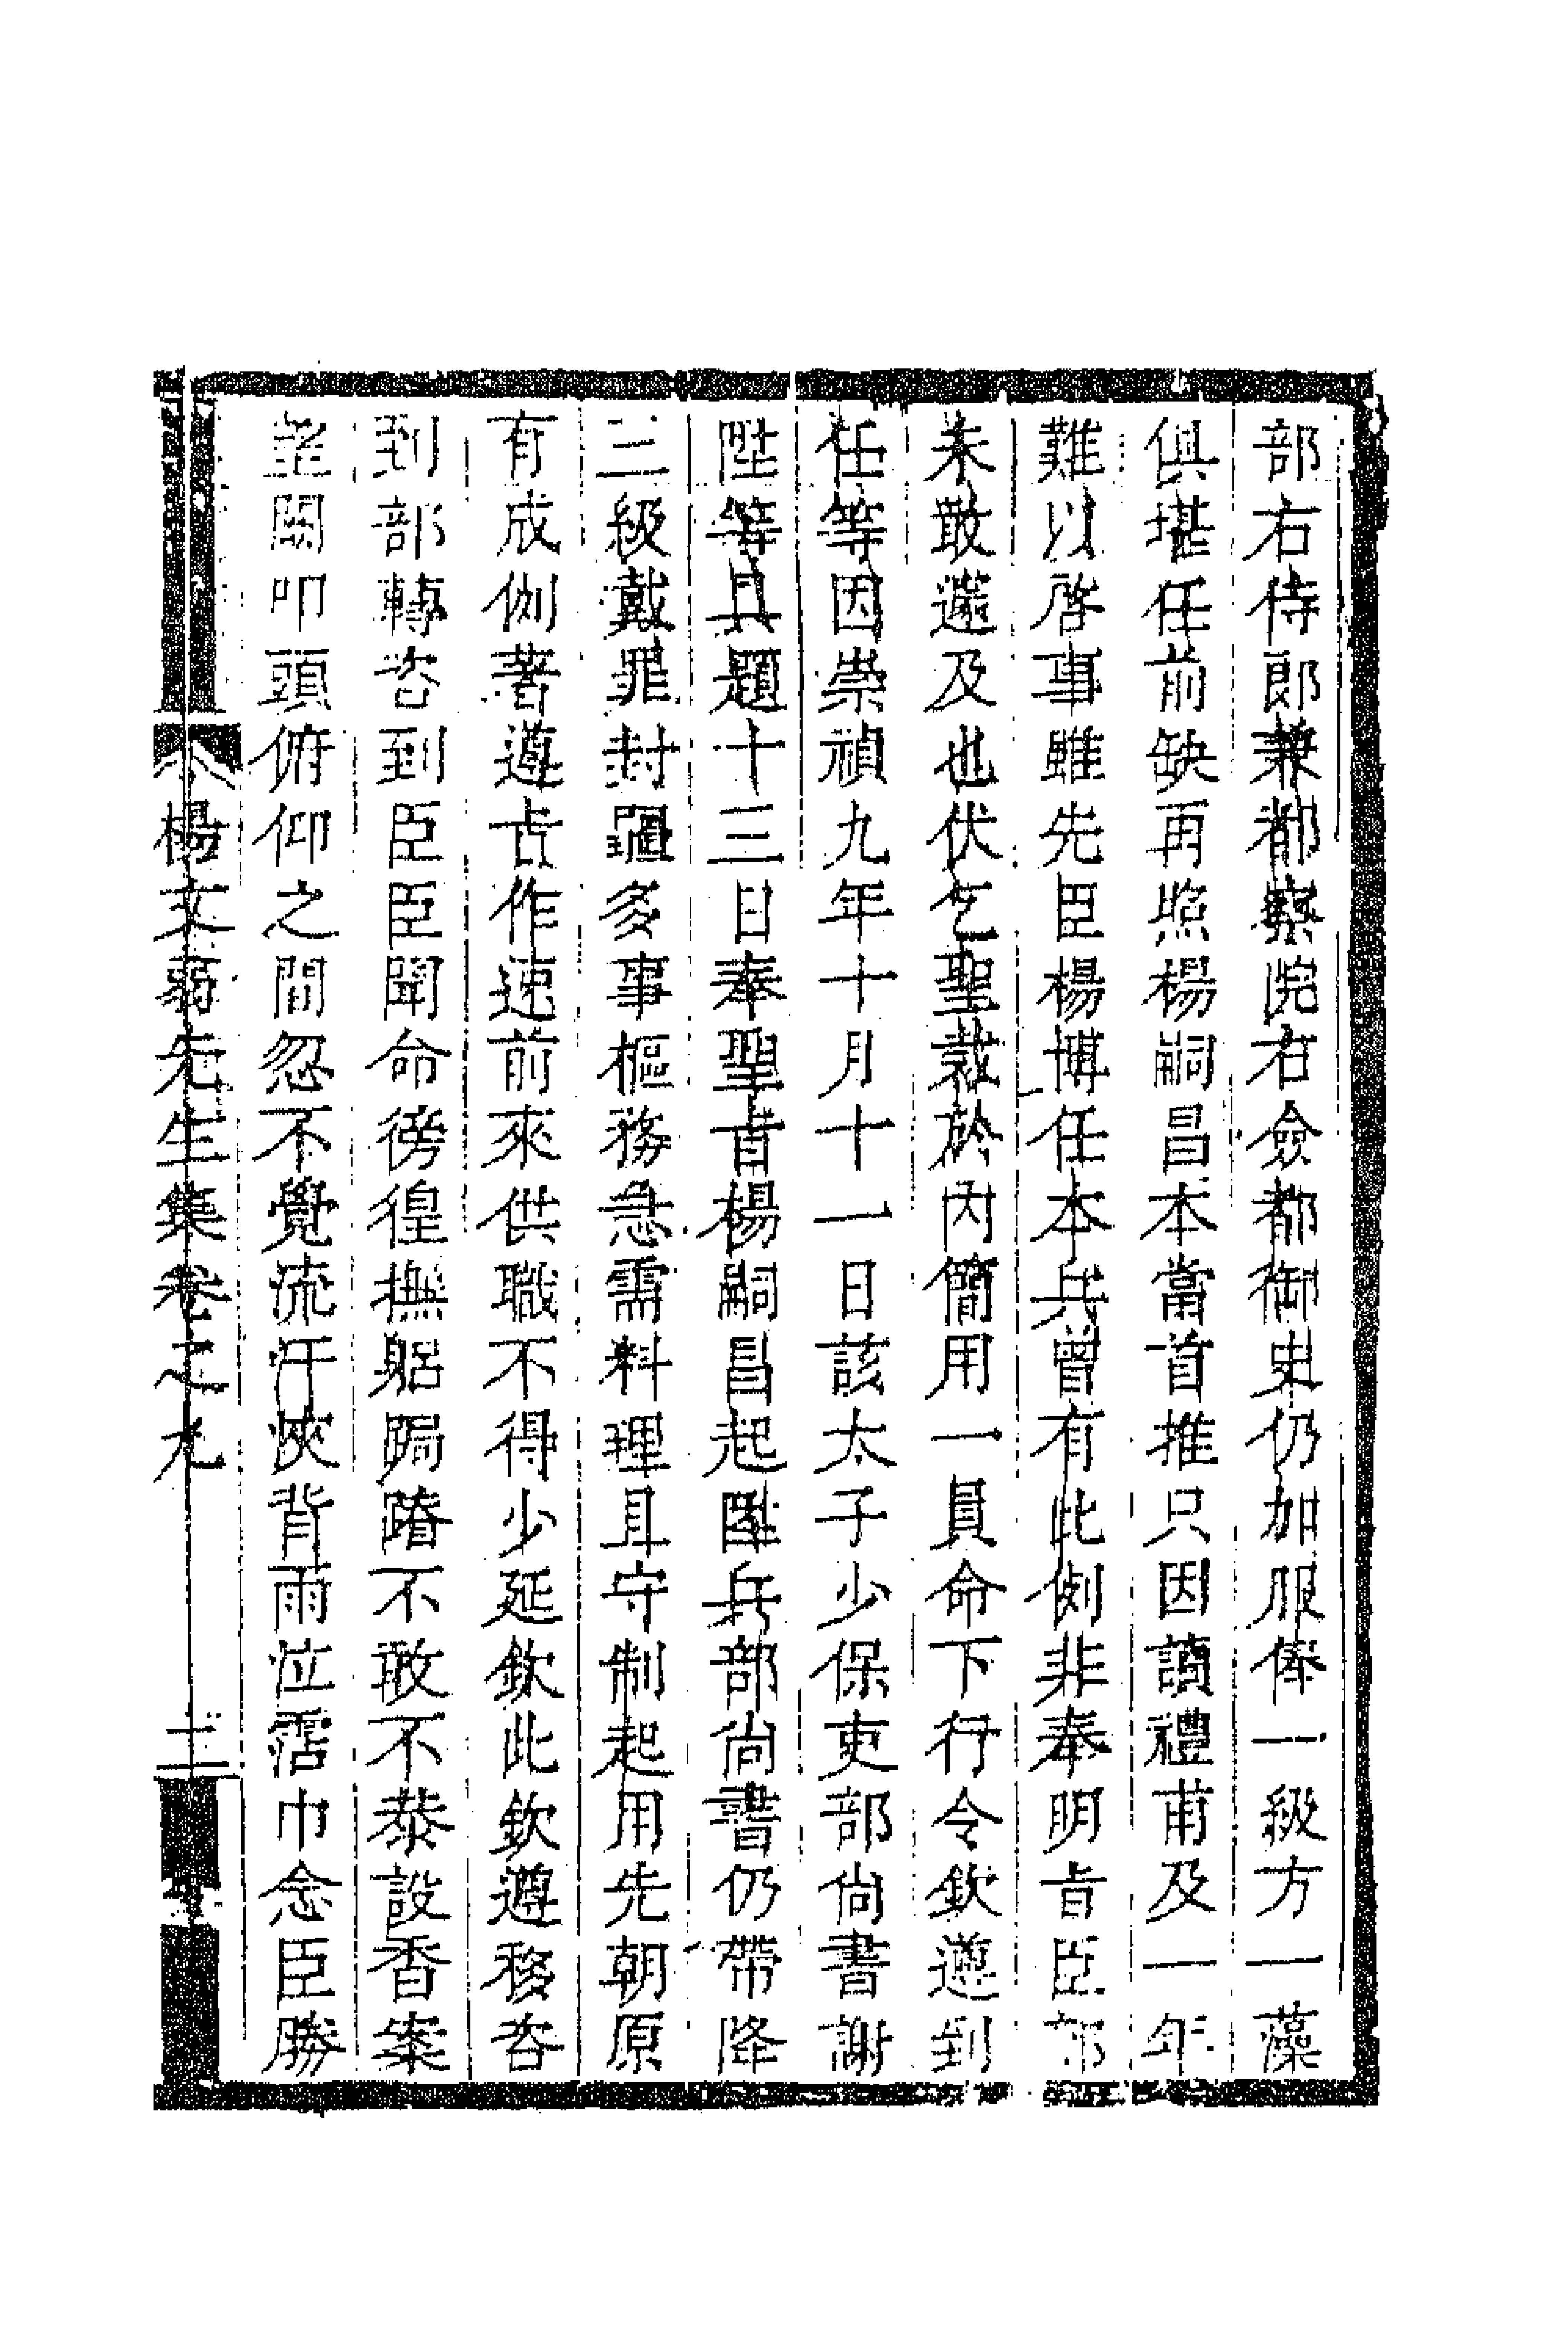 部右侍郎兼都察院右僉都御史仍加服俸一級方一藻
俱堪任前缺再照楊嗣昌本當首推只因讀禮甫及一年
難以啓事雖先臣楊博任本兵曾有此例非奉明旨臣部
未敢遽及也伏乞聖裁於內簡用一員命下行令欽遵到
任等因崇禎九年十月十一日該太子少保吏部尚書謝
陞等具題十三日奉聖旨楊嗣昌起陞兵部尚書仍帶降
三級戴罪封疆多事樞務急需料理且守制起用先朝原
有成例著遵旨作速前來供職不得少延欽此欽遵移咨
到部轉咨到臣臣聞命徬徨撫躬跼蹐不敢不恭設香案
望闕叩頭俯仰之間忽不覺流汗浹背雨泣霑巾念臣勝
楊文弱先生集卷之九
二